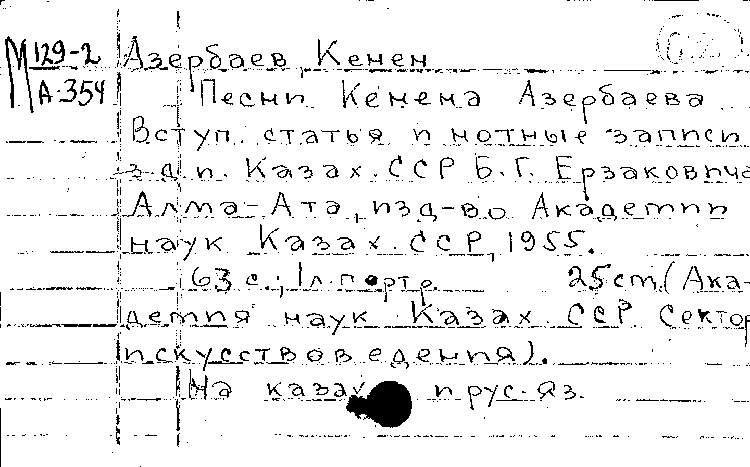 М 129-2 Азербаев, Кенен
А-354 Песни Кенена Азербаева
Вступ. статья и нотные записи
з.д.и. Казах. ССР Б.Г. Ерзаковича
Алма-Ата, изд-во Академии
наук Казах. ССР, 1955.
63 с.; 1 л. портр. 25 cm. (Ака-
демия наук Казах. ССР. Сектор
искусствоведения).
На казах. и рус. яз.